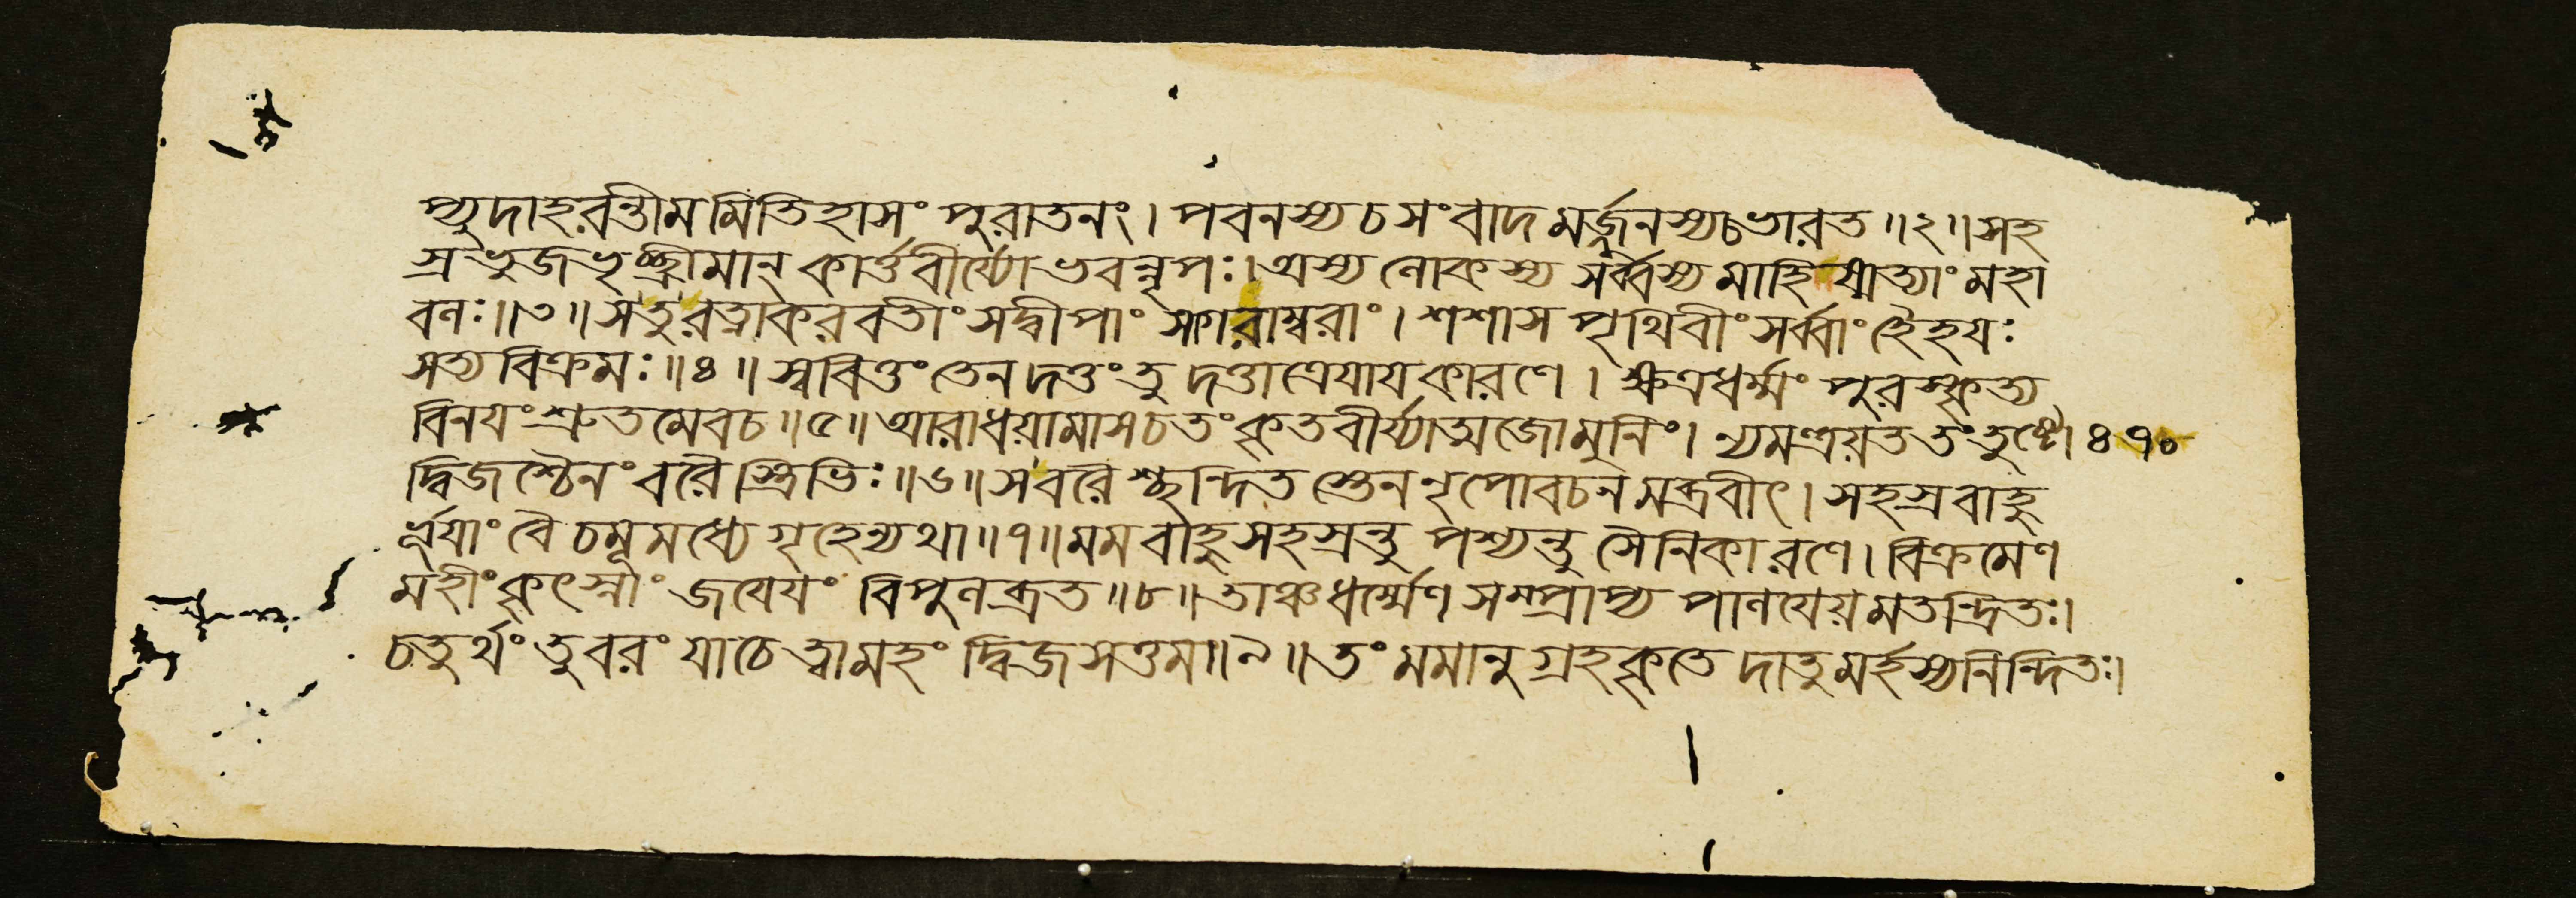 প্যুদাহরন্তীমমিতিহাসং পুরাতনং। পবনস্য চ সংবাদমর্জ্জুনস্য চ ভারত॥২॥সহ
স্রভুজভৃচ্ছ্রীমান্ কার্ত্তবীর্য্যোভবন্নৃপঃ।অস্য লোকস্য সর্ব্বস্য মাহিষ্মত্যাং মহা
বলঃ॥৩॥সতু রত্নাকরবতীং সদ্বীপাং সাগরাম্বরাং। শশাস পৃথিবীং সর্ব্বাং হৈহযঃ
সত্যবিক্রমঃ॥৪॥স্ববিত্তং তেন দত্তং তু দত্তাত্রেযায কারণে। ক্ষত্রধর্ম্মং পুরস্কৃত্য
বিনযং শ্রুতমেবচ॥৫॥আরাধয়ামাস চ তং কৃতবীর্য্যাত্মজোমুনিং। ন্যমন্ত্রয়ত তং তুষ্টো। ৪৭০
দ্বিজশ্চৈনং বরৈস্ত্রিভিঃ॥৬॥স বরৈশ্ছন্দিতস্তেন নৃপোবচনমব্রবীৎ। সহস্রবাহু
র্ভূযাং বৈ চমূমধ্যে গৃহেন্যথা॥৭॥মম বাহুসহস্রন্তু পশ্যন্তু সৈনিকা রণে। বিক্রমেণ
মহীং কৃৎস্নাং জযেযং বিপুলব্রত॥৮॥তাঞ্চ ধর্ম্মেণ সম্প্রাপ্য পালযেয়মতন্দ্রিতঃ।
চতুর্থং তু বরং যাচে ত্বামহং দ্বিজসত্তম॥৯॥তং মমানুগ্রহকৃতে দাতুমর্হস্যনিন্দিতঃ।